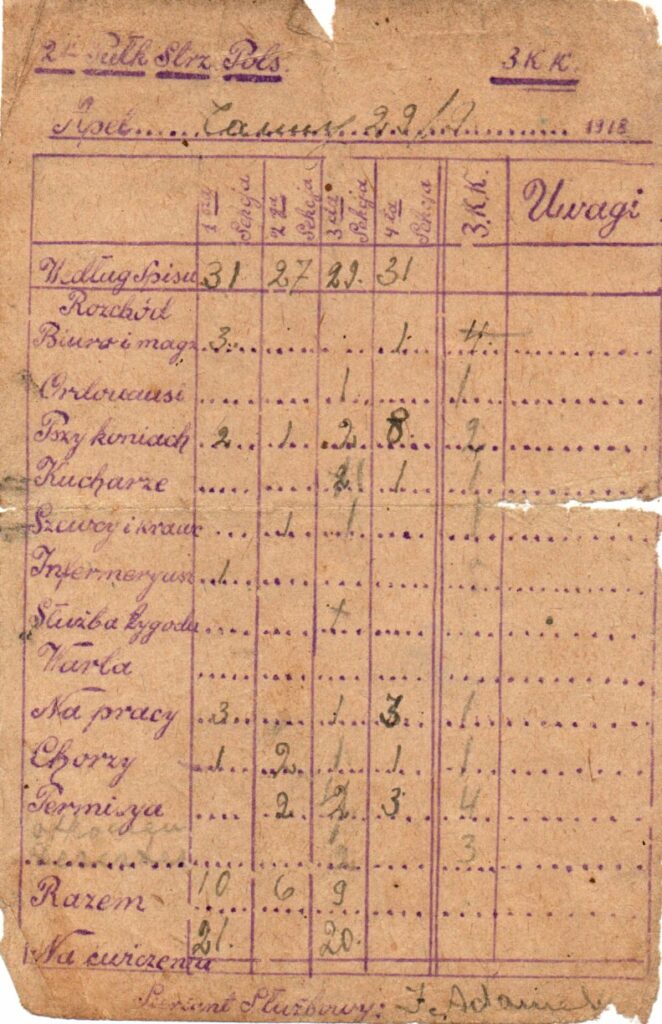 2gi Pułk Strz Pols. 3 K K.
Apel ranny 29/ 1918
1 sza Sekcja 2 ga Sekcja 3 cia Sekcja 4 ta Sekcja 3. K. K. Uwagi
Według Spisu 31 27 29. 31
Rozchód
Biuro i mag. 3 1 4
Ordonausi 1 1
Pszy koniach 2 1 2 8 2
Kucharze 2 1 1
Szewcy i krawc 1 1 1
Infermeryusz 1
Służba tygodn 1
Warta
Na pracy 3 1 3 1
Chorzy 1 2 1 1 1
Permisya 2 2 3 4
2 3
Razem 10 6 9
Na ćwiczeniu 21. 20.
Szerżant Służbowy: F. Adamek